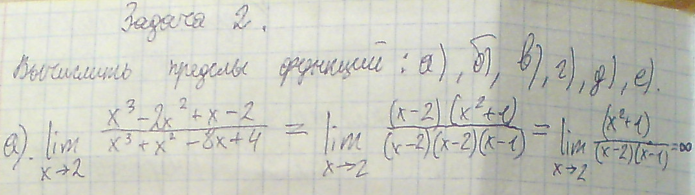 Задача 2.
Вычислить пределы функций: а), б), в), г), д), е).
а). lim x→2 (x³-2x²+x-2)/(x³+x²-8x+4) = lim x→2 ((x-2)(x²+1))/((x-2)(x-2)(x-1)) = lim x→2 (x²+1)/((x-2)(x-1)) = ∞